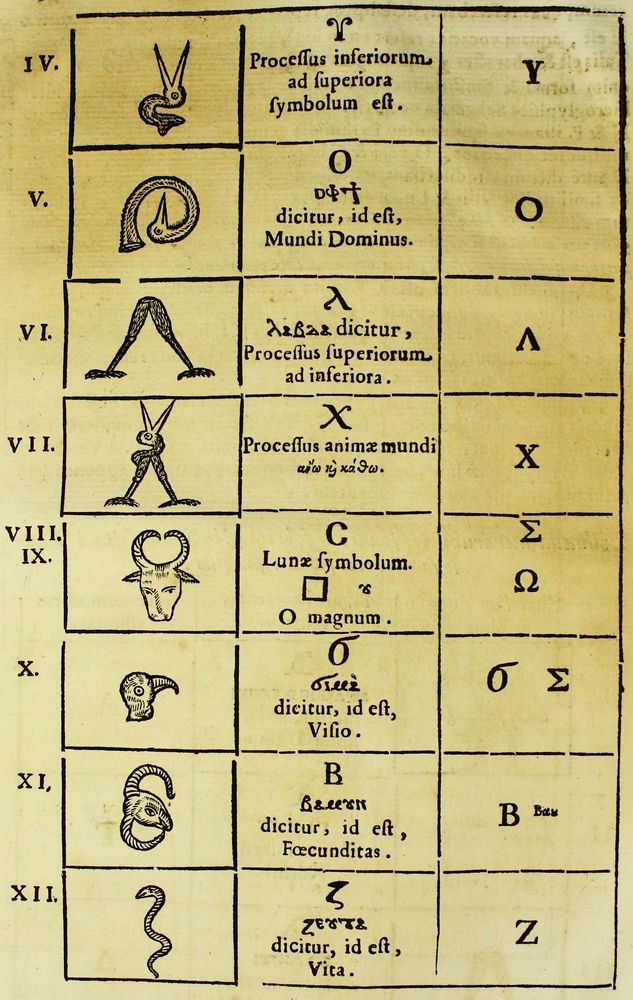 IV.
ϒ
Proceſſus inferiorum
ad ſuperiora
ſymbolum eſt.
Υ
V.
O
dicitur, id eſt,
Mundi Dominus.
O
VI.
λ
dicitur,
Proceſſus ſuperiorum
ad inferiora.
Λ
VII.
X
Proceſſus animæ mundi
ἄνω κὶ κάθω.
X
VIII.
IX.
C
Lunæ ſymbolum.
O magnum.
Σ
Ω
X.
σ
dicitur, id eſt,
Viſio.
σ Σ
XI,
B
dicitur, id eſt,
Fœcunditas.
B
XII.
ζ
dicitur, id eſt,
Vita.
Z